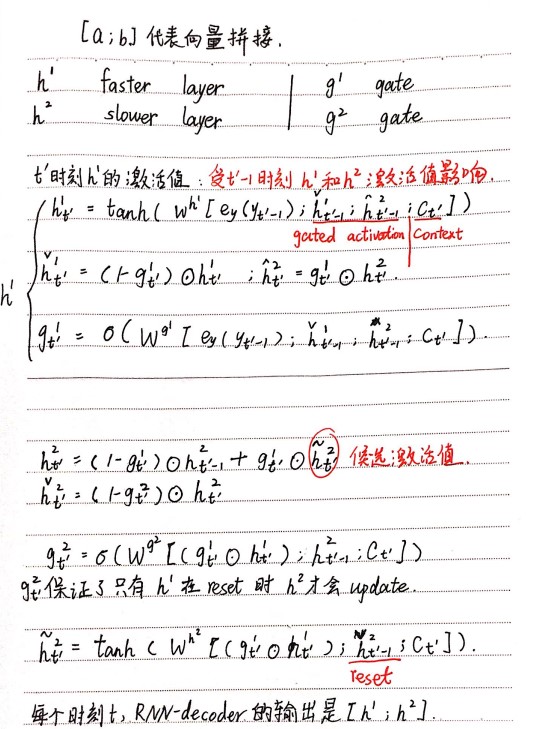 [a;b] 代表向量拼接.
h¹ faster layer | g¹ gate
h² slower layer | g² gate
t'时刻h¹的激活值：受t'-1时刻 h¹ 和 h² 激活值影响.
h¹ₜ' = tanh( W^h¹ [ e_y(y_t'-1) ; ȟ¹_t'-1 ; ĥ²_t'-1 ; C_t' ] )
gated activation | context
h¹ { ȟ¹_t' = (1-g¹_t') ⊙ h¹_t' ; ĥ²_t' = g¹_t' ⊙ h²_t'.
g¹_t' = σ( W^g¹ [ e_y(y_t'-1) ; ȟ¹_t'-1 ; ĥ²_t'-1 ; C_t' ] ).
h²_t' = (1-g¹_t') ⊙ h²_t'-1 + g¹_t' ⊙ h̃²_t' 候选激活值.
ȟ²_t' = (1-g²_t') ⊙ h²_t'
g²_t' = σ( W^g² [ (g¹_t' ⊙ h¹_t') ; h²_t'-1 ; C_t' ] )
g²_t' 保证了只有 h¹ 在 reset 时 h² 才会 update.
h̃²_t' = tanh( W^h² [ (g¹_t' ⊙ h¹_t') ; ȟ²_t'-1 ; C_t' ] ).
reset
每个时刻t, RNN-decoder 的输出是 [h¹ ; h²].